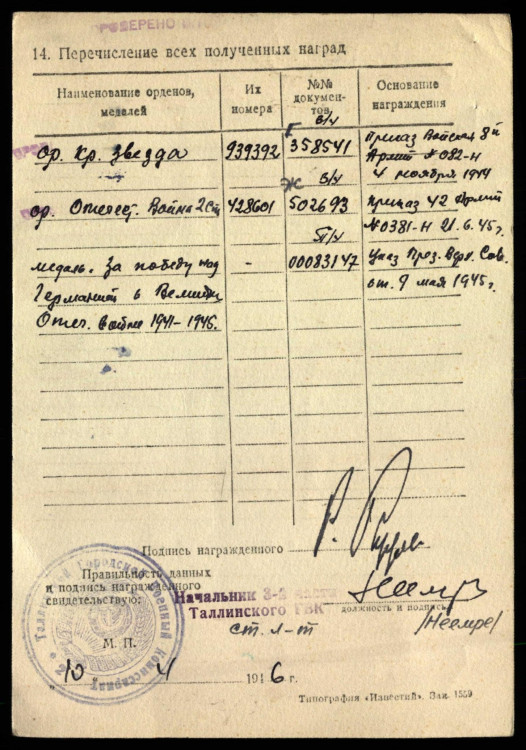 ПРОВЕРЕНО
14. Перечисление всех полученных наград
Наименование орденов, медалей
Их номера
№№ документов
Основание награждения
ор. Кр. Звезда
939392
Г б/н 358541
Приказ Войскам 8й
Армии №082-Н
4 ноября 1944
ор. Отечест. Война 2 ст
428601
Ж б/н 502693
приказ 42 Армии
№0381-Н 21.6.45г.
медаль. За победу над
Германией в Великой
Отеч. войне 1941-1945.
-
П/н 00083147
Указ През. Верх. Сов.
от. 9 мая 1945г.
Подпись награжденного
Правильность данных
и подпись награжденного
свидетельствую:
Начальник 3-й части
Таллинского ГВК
ст. л-т
должность и подпись
/Неемре/
М. П.
Таллинский Городской Военный Комиссариат
10 4 1946 г.
Типография «Известий». Зак. 1559